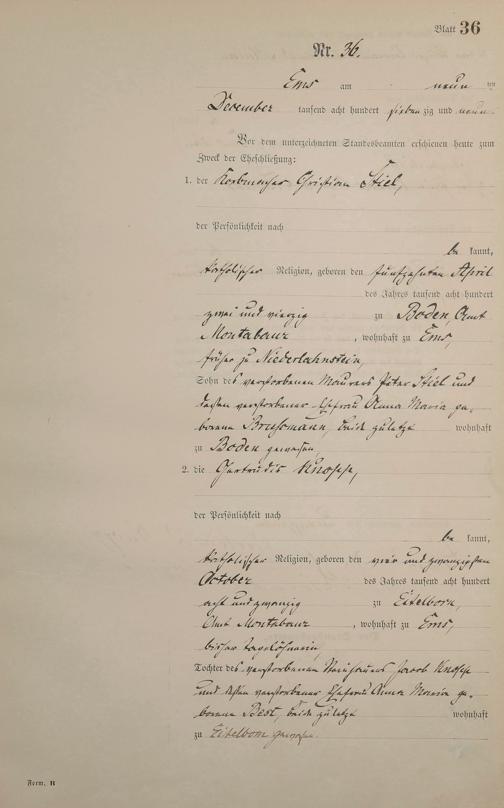 Blatt 36
Nr. 36.
Ems am neun
December tausend acht hundert siebenzig und neun
Vor dem unterzeichneten Standesbeamten erschienen heute zum
Zweck der Eheschließung:
1. der Korbmacher Christian Stiel,
der Persönlichkeit nach
bekannt,
katholischer Religion, geboren den fünfzehnten April
des Jahres tausend acht hundert
zwei und vierzig zu Boden, Amt
Montabaur, wohnhaft zu Ems,
früher zu Niederlahnstein,
Sohn des verstorbenen Maurers Peter Stiel und
dessen verstorbener Ehefrau Anna Maria ge-
borene, beide zuletzt wohnhaft
zu Boden gewesen,
2. die Gertrudis Knopp,
der Persönlichkeit nach
bekannt,
katholischer Religion, geboren den vier und zwanzigsten
October des Jahres tausend acht hundert
acht und zwanzig zu Eitelborn,
Amt Montabaur, wohnhaft zu Ems,
bisher Tagelöhnerin,
Tochter des verstorbenen Jacob Knopp
und dessen verstorbener Ehefrau Anna Maria ge-
borene Best, beide zuletzt wohnhaft
zu Eitelborn gewesen.
Form. B